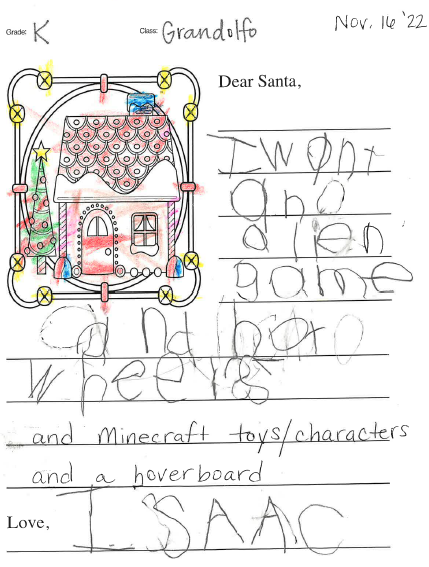 Grade: K Class: Grandolfo Nov. 16 '22
Dear Santa,
I want
a
alien
game
and
wheels
and minecraft toys/characters
and a hoverboard
Love, ISAAC